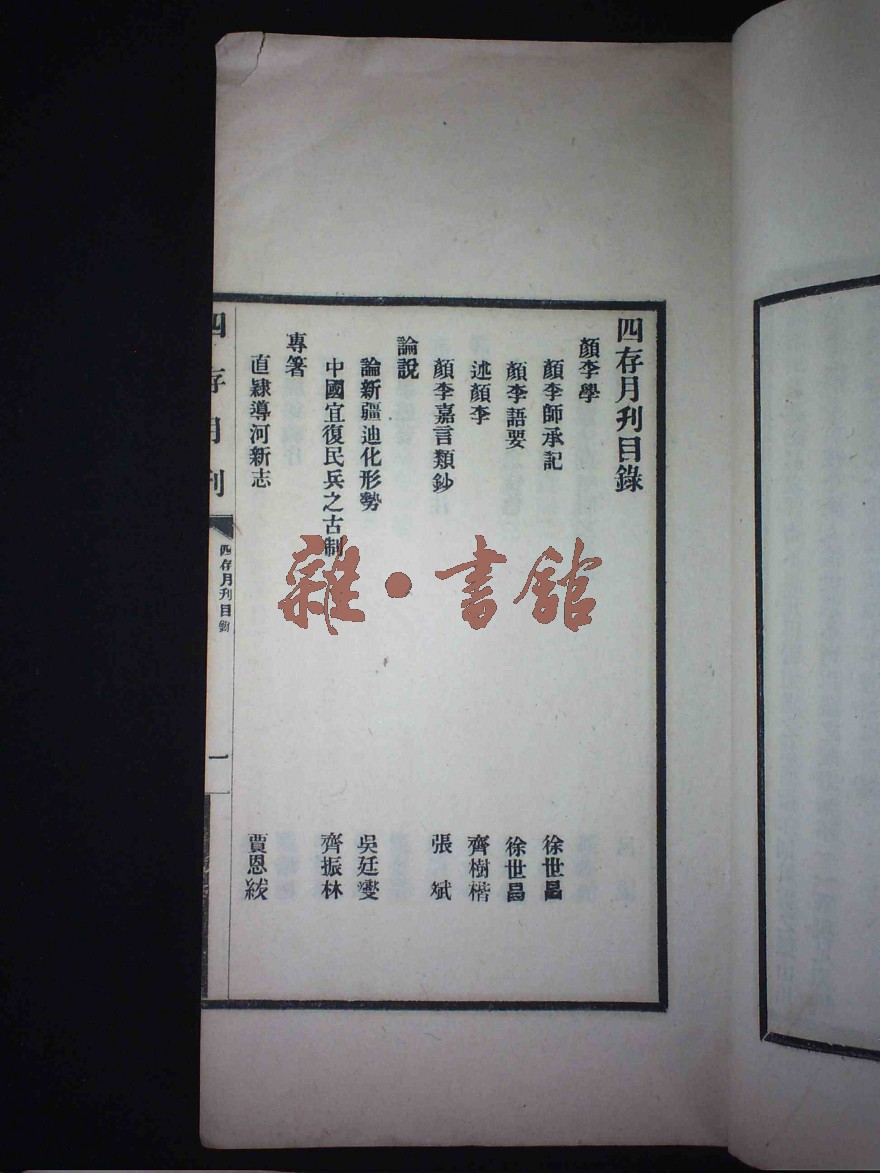 四存月刋目錄
顏李學
顏李師承記 徐世昌
顏李語要 徐世昌
述顏李 齊樹楷
顏李嘉言類鈔 張斌
論說
論新疆迪化形勢 吳廷燮
中國宜復民兵之古制 齊振林
專箸
直隸導河新志 賈恩紱
四存月刋
四存月刋目錄
一
雜·書館